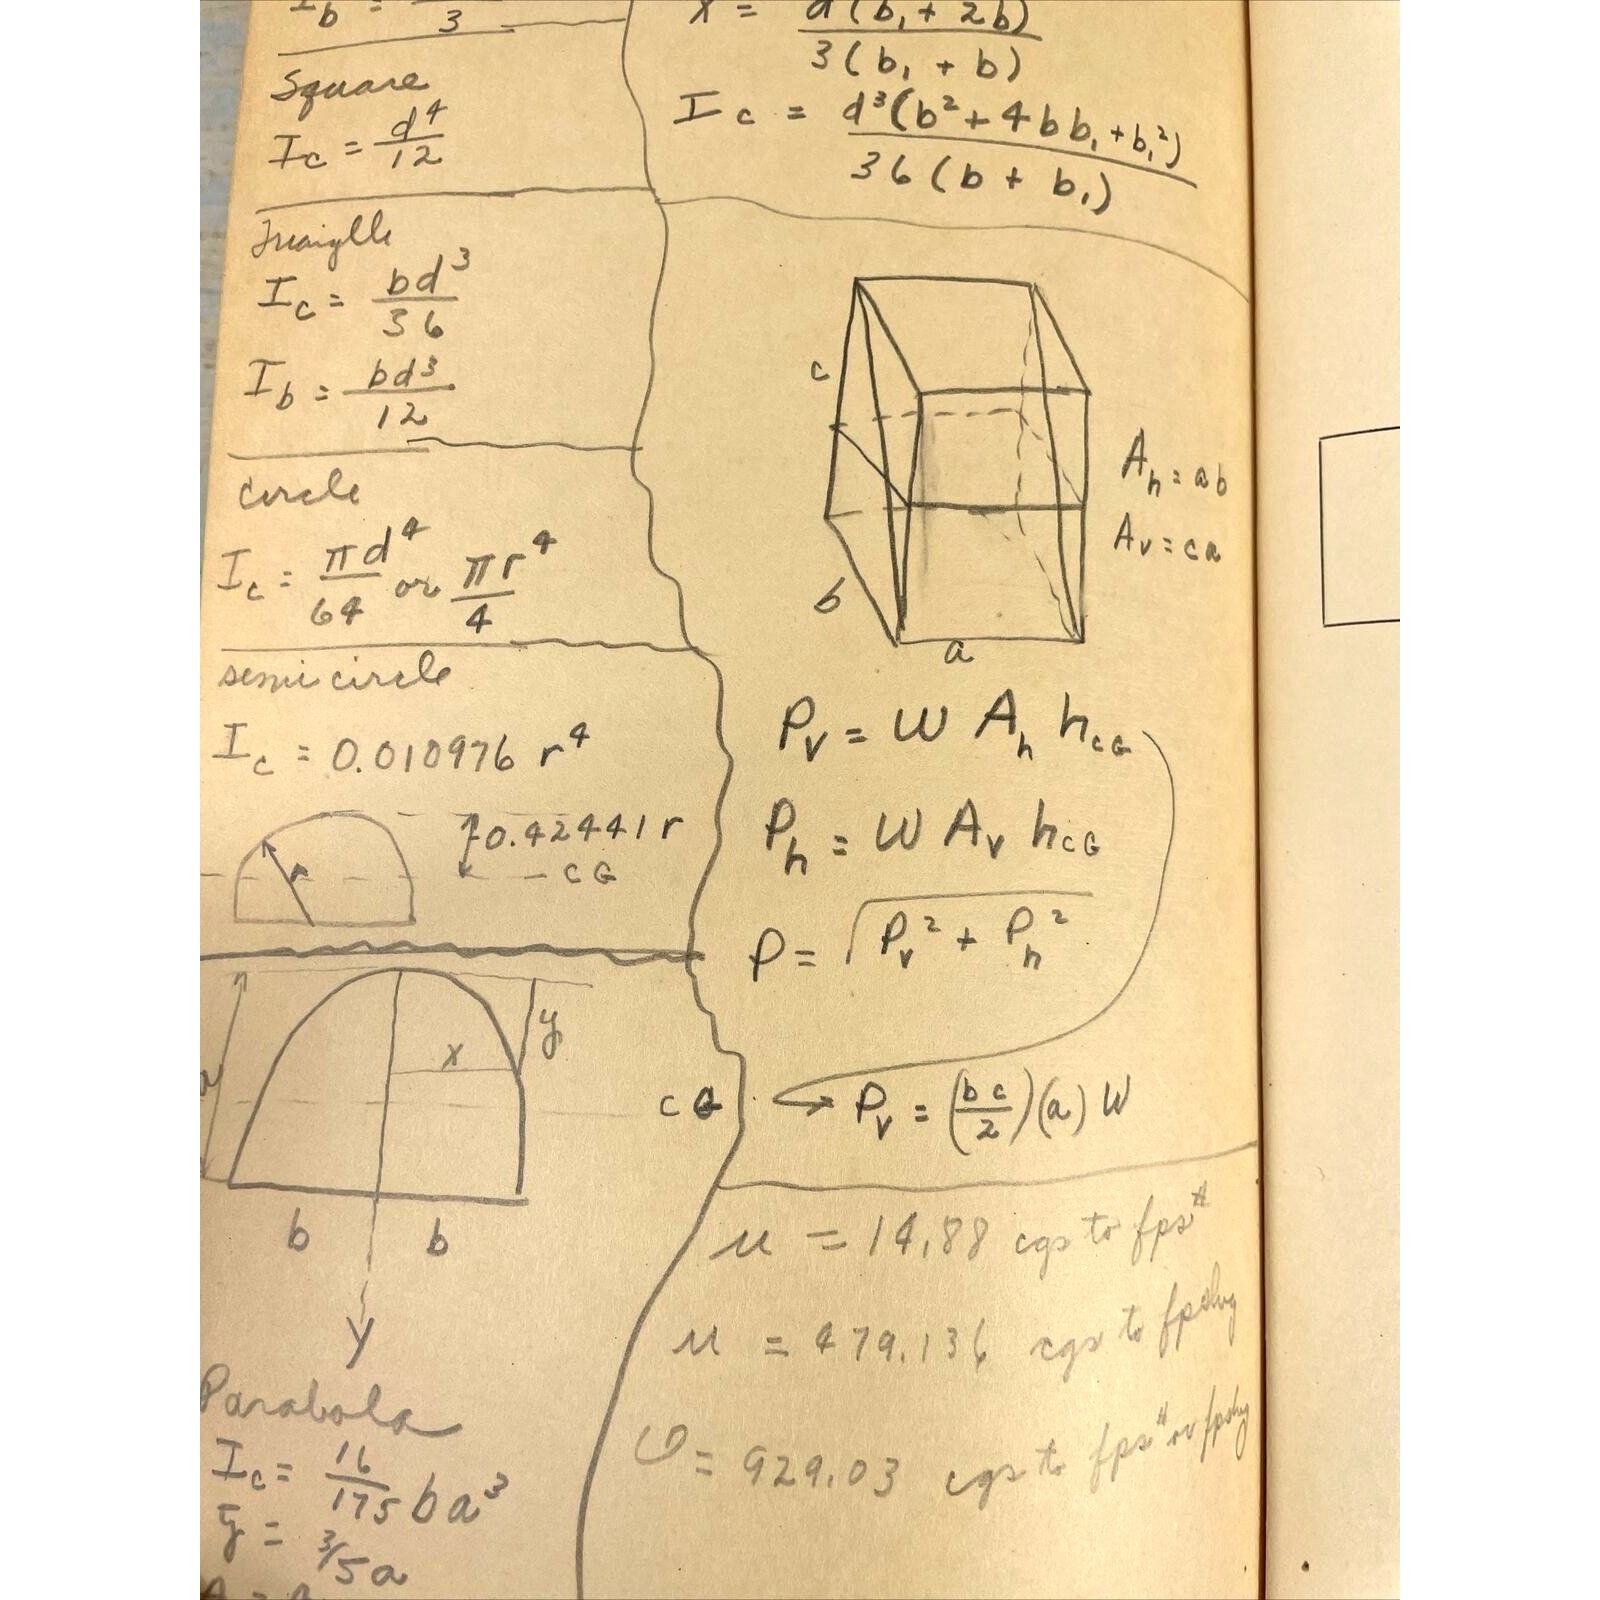 I_b = 3
Square
I_c = d⁴/12
I_c = bd³/36
I_b = bd³/12
circle
I_c = πd⁴/64 or πr⁴/4
semi circle
I_c = 0.010976 r⁴
r
0.42441 r
CG
y
x
a
CG
b b
Y
Parabola
I_c = 16/175 ba³
ȳ = 3/5 a
x = d(b₁ + 2b)/3(b₁ + b)
I_c = d³(b² + 4bb₁ + b₁²)/36(b + b₁)
c
A_h = ab
A_v = ca
b
a
P_v = W A_h h_CG
P_h = W A_v h_CG
P = √(P_v² + P_h²)
P_v = (bc/2)(a) W
u = 14.88 cgs to fps#
u = 479.136 cgs to fpslug
= 929.03 cgs to fps# or fpslug